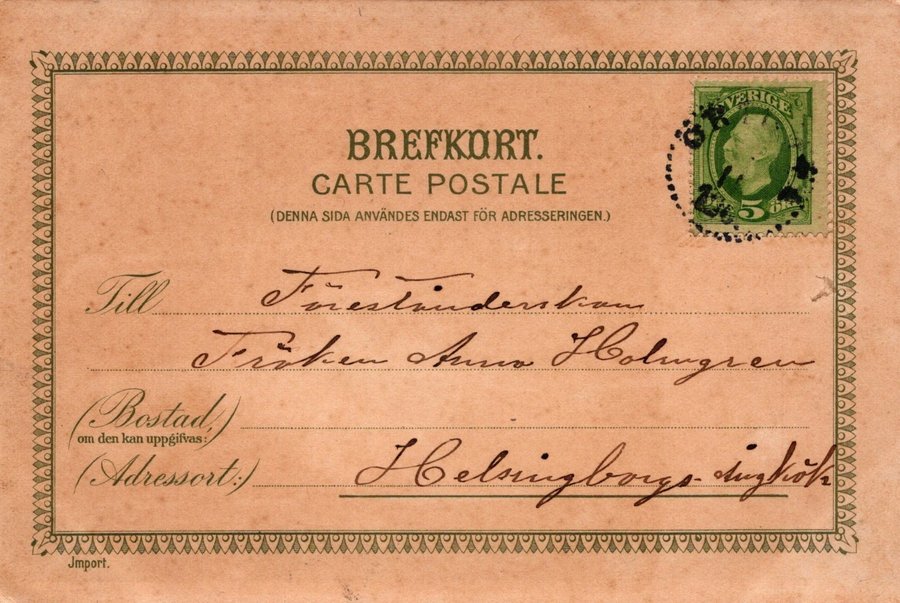 SVERIGE
5 ÖRE
BREFKORT.
CARTE POSTALE
(DENNA SIDA ANVÄNDES ENDAST FÖR ADRESSERINGEN.)
Till Föreståndarskan
Fröken Anna Holmgren
(Bostad,)
om den kan uppgifvas:
(Adressort:) Helsingborgs Ångkök
Jmport.